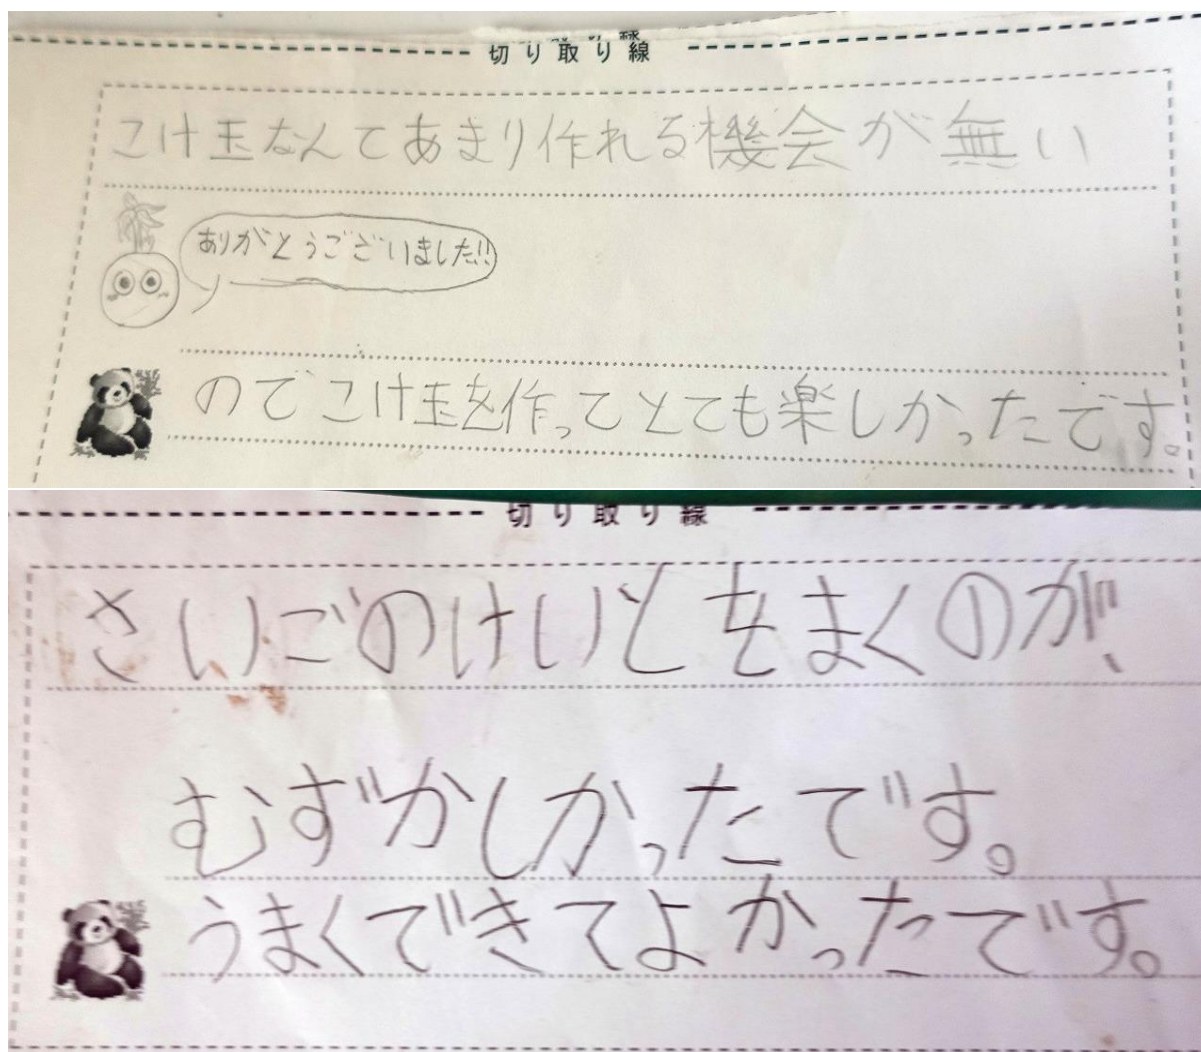 切り取り線
こけ玉なんてあまり作れる機会が無い
ありがとうございました!!
のでこけ玉を作ってとても楽しかったです。
切り取り線
さいごのけいとをまくのが、
むずかしかったです。
うまくできてよかったです。